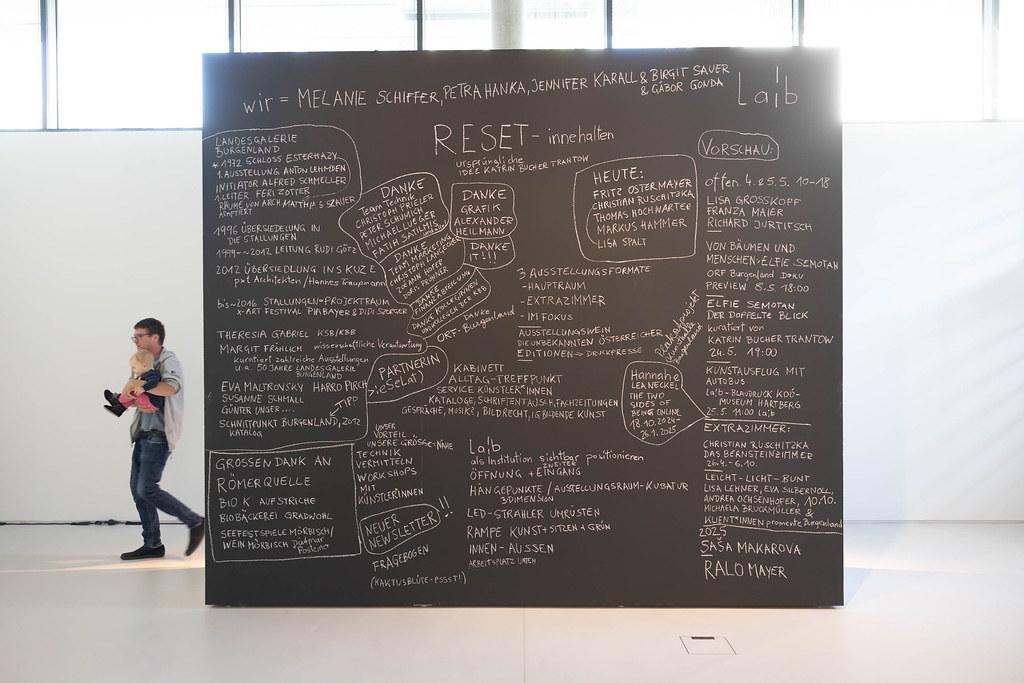 wir = MELANIE SCHIFFER, PETRA HANKA, JENNIFER KARALL & BIRGIT SAUER
& GÁBOR GONDA
La¦b
RESET - innehalten
ursprüngliche
IDEE KATRIN BUCHER TRANTOW
LANDESGALERIE
BURGENLAND
* 1972 SCHLOSS ESTERHAZY
1. AUSSTELLUNG ANTON LEHMDEN
INITIATOR ALFRED SCHMELLER
1. LEITER FERI ZOTTER
RÄUME VON ARCH MATTHIAS SZAUER
ADAPTIERT
1996 ÜBERSIEDLUNG IN
DIE STALLUNGEN
1999-~2012 LEITUNG RUDI GÖTZ
2012 ÜBERSIEDLUNG INS KUZE
pxt Architekten / Hannes Traupmann
bis~2016 STALLUNGEN = PROJEKTRAUM
X-ART FESTIVAL PIA BAYER & DIDI
THERESIA GABRIEL KSB/KBB
MARGIT FRÖHLICH wissenschaftliche Verantwortung
kuratiert zahlreiche Ausstellungen
u.a. 50 JAHRE LANDESGALERIE
BURGENLAND
EVA MALTROVSKY HARRO PIRCH
SUSANNE SCHMALL
GÜNTER UNGER....
TIPP
SCHNITTPUNKT BURGENLAND, 2012
KATALOG
GROSSEN DANK AN
RÖMERQUELLE
BIO K. AUFSTRICHE
BIOBÄCKEREI GRADWOHL
SEEFESTSPIELE MÖRBISCH/
WEIN MÖRBISCH Dietmar
DANKE
Team Technik
CHRISTOPH PRIELER
PETER SCHUMICH
MICHAEL LIEGER
FATIH SATILMIS
DANKE
TEAM MARKETING
DORIS
DANKE
FINANZABTEILUNG
DANKE KOLLEGINNEN
DER KBB
DANKE
GRAFIK
ALEXANDER
HEILMANN
DANKE
IT!!
ORF - DANKE
Burgenland
PARTNERIN
>:eSeLat)
UNSER
VORTEIL
UNSERE GRÖSSE = NÄHE
TECHNIK
VERMITTELN
WORKSHOPS
MIT
KÜNSTLERINNEN
NEUER
NEWSLETTER !!
FRAGEBOGEN
(KAKTUSBLÜTE-PSSST!)
HEUTE:
FRITZ OSTERMAYER
CHRISTIAN RUSCHITZKA
THOMAS HOCHWARTER
MARKUS HAMMER
LISA SPALT
3 AUSSTELLUNGSFORMATE
- HAUPTRAUM
- EXTRAZIMMER
- IM FOKUS
AUSSTELLUNGSWEIN
DIE UNBEKANNTEN ÖSTERREICHER
EDITIONEN = DRUCKPRESSE
KABINETT
ALLTAG - TREFFPUNKT
SERVICE KÜNSTLER*INNEN
KATALOGE, SCHRIFTENTAUSCH, FACHZEITUNGEN
GESPRÄCHE, MUSIK?, BILDRECHT, IG BILDENDE KUNST
La¦b
als Institution sichtbar positionieren
ÖFFNUNG + ZWEITER EINGANG
HÄNGEPUNKTE / AUSSTELLUNGSRAUM-KUBATUR
3DIMENSION
LED-STRAHLER UMRÜSTEN
RAMPE KUNST + SITZEN + GRÜN
INNEN - AUSSEN
ARBEITSPLATZ UNTEN
Hannah
LEA NECKEL
THE TWO
SIDES OF
BEING ONLINE
18.10.2024-
26.1.2025
VORSCHAU:
offen 4. & 5.5. 10-18
LISA GROSSKOPF
FRANZA MAIER
RICHARD JURTITSCH
VON BÄUMEN UND
MENSCHEN > ELFIE SEMOTAN
ORF Burgenland DOKU
PREVIEW 8.5. 18:00
ELFIE SEMOTAN
DER DOPPELTE BLICK
kuratiert von
KATRIN BUCHER TRANTOW
24.5. 19:00
KUNSTAUSFLUG MIT
AUTOBUS
La¦b - BLAUDRUCK KOÓ -
MUSEUM HARTBERG
25.5. 11:00 La¦b
EXTRAZIMMER:
CHRISTIAN RUSCHITZKA
DAS BERNSTEINZIMMER
26.4.-6.10.
LEICHT-LICHT-BUNT
LISA LEHNER, EVA SILBERNOLL,
ANDREA OCHSENHOFER, 10.10.
MICHAELA BRUCKMÜLLER &
KLIENT*INNEN promente Burgenland
2025
SAŠA MAKAROVA
RALO MAYER